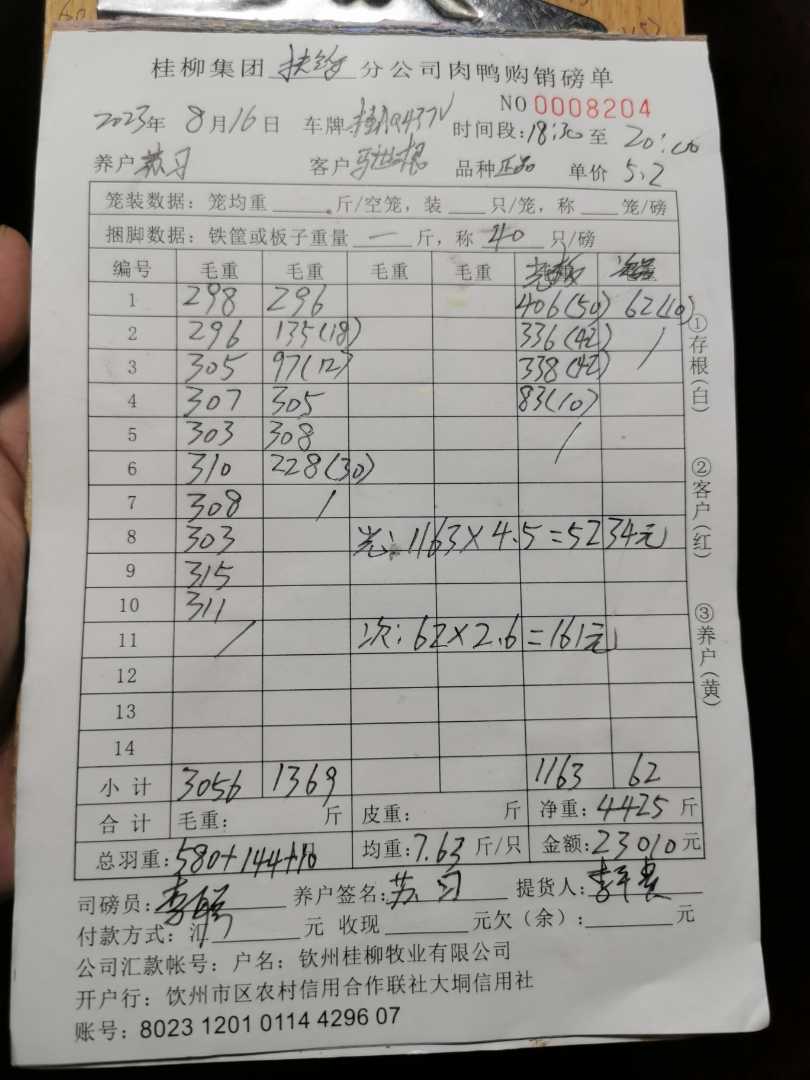 桂柳集团 扶绥 分公司肉鸭购销磅单
NO 0008204
2023年 8月16日 车牌 时间段:18:30至 20:00
养户 苏习 客户 品种 正品 单价 5.2
笼装数据:笼均重____斤/空笼,装___只/笼,称___笼/磅
捆脚数据:铁筐或板子重量 一 斤,称 40 只/磅
编号 毛重 毛重 毛重 毛重
1 298 296 406(50) 62(10)
2 296 135(18) 336(42) /
3 305 97(12) 338(42)
4 307 305 83(10)
5 303 308 /
6 310 228(30)
7 308 /
8 303 光:1163×4.5=5234元
9 315
10 311
11 / 次:62×2.6=161元
12
13
14
小计 3056 1369 1163 62
合计 毛重: 斤 皮重: 斤 净重:4425斤
总羽重:580+144+10 均重:7.63斤/只 金额:23010元
司磅员: 养户签名:苏习 提货人:
付款方式:汇____元 收现____元欠(余):____元
公司汇款帐号:户名:钦州桂柳牧业有限公司
开户行:饮州市区农村信用合作联社大垌信用社
账号:8023 1201 0114 4296 07
①存根(白)
②客户(红)
③养户(黄)